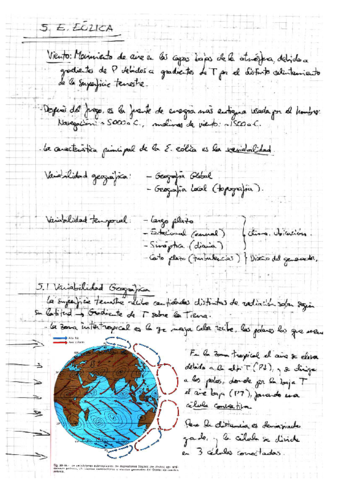 5. E. EÓLICA
Viento: Movimiento de aire en las capas bajas de la atmósfera, debido a
gradientes de P debidos a gradientes de T por el distinto calentamiento
de la superficie terrestre.
· Después del fuego, es la fuente de energía más antigua usada por el hombre
Navegación: ≈5000 a.C., molinos de viento: ≈1500 a.C.
· La característica principal de la E. eólica es la variabilidad
Variabilidad geográfica: - Geografía Global
- Geografía Local (topografía).
Variabilidad temporal: - Largo plazo
- Estacional (annual)
- Sinóptica (diaria)
- Corto plazo (turbulencias)
clima, ubicación.
Diseño del generador.
5.1 Variabilidad Geográfica
· La superficie terrestre recibe cantidades distintas de radiación solar según
su latitud → Gradiente de T sobre la Tierra.
· La zona intertropical es la que mayor calor recibe, los polos los que menos
En la zona tropical el aire se eleva
debido a la alta T (P↓), y se dirige
a los polos, donde por la baja T
el aire baja (P↑), formando una
célula convectiva
Pero la distancia es demasiado
grande, y la célula se divide
en 3 células conectadas.